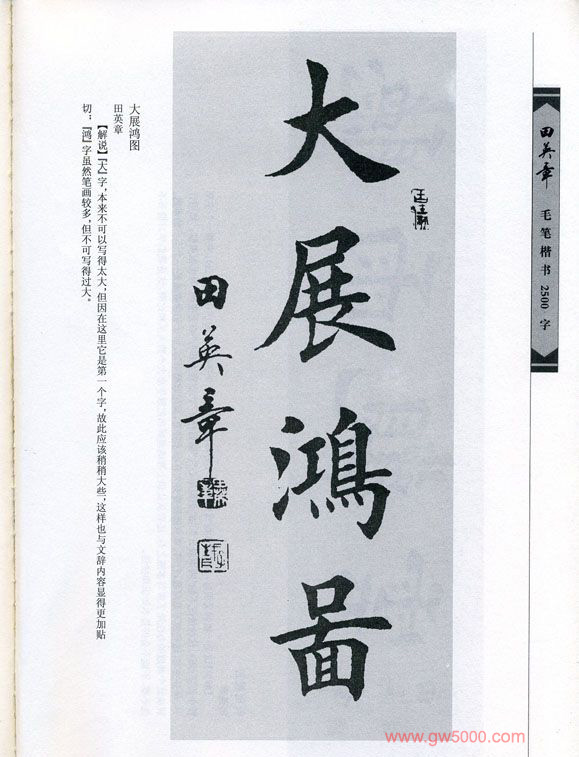 田英章 毛笔楷书 2500 字
大展鸿啚
田英章
大展鸿图
田英章
【解说】『大』字,本来不可以写得太大,但因在这里它是第一个字,故此应该稍稍大些,这样也与文辞内容显得更加贴
切;『鸿』字虽然笔画较多,但不可写得过大。
www.gw5000.com